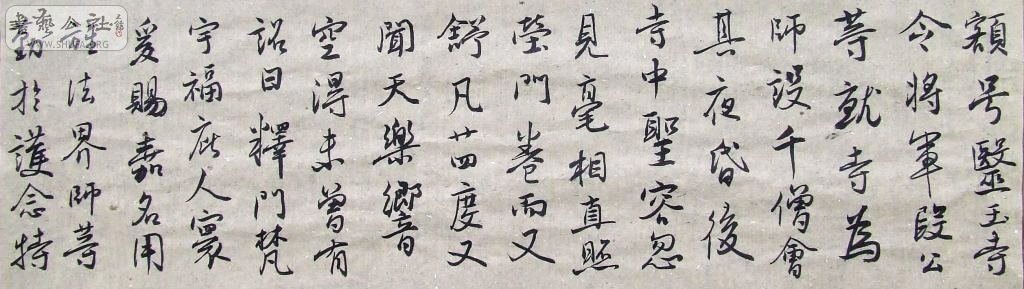 額号毉王寺
令将軍段公
等就寺為
師設千僧會
其夜昏後
寺中聖容忽
見毫相直照
瑩門卷而又
舒凡廿四度又
聞天樂響音
空得未曾有
詔曰釋門梵
宇福庇人寰
爰賜嘉名用
法界師等
勤於護念特
書藝公社
WWW.SHUFA.ORG